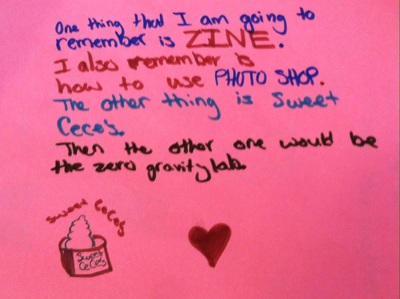 One thing that I am going to
remember is ZINE.
I also remember is
how to use PHOTO SHOP.
The other thing is Sweet
Cece's.
Then the other one would be
the zero gravity lab.
Sweet CeCe's
Sweet
CeCe's